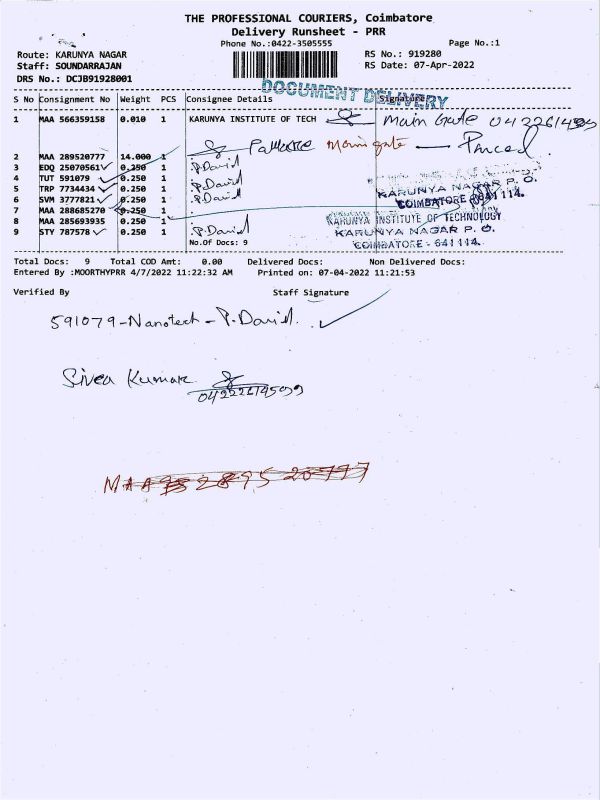 THE PROFESSIONAL COURIERS, Coimbatore
Delivery Runsheet - PRR
Phone No.:0422-3505555 Page No.:1
Route: KARUNYA NAGAR RS No.: 919280
Staff: SOUNDARRAJAN RS Date: 07-Apr-2022
DRS No.: DCJB91928001
DOCUMENT DELIVERY
S No Consignment No Weight PCS Consignee Details Signature
1 MAA 566359158 0.010 1 KARUNYA INSTITUTE OF TECH Main Gate
Main gate - Parcel.
2 MAA 289520777 14.000 1
3 EDQ 25070561 0.250 1 P.David
4 TUT 591079 0.250 1
5 TRP 7734434 0.250 1 P.David
6 SVM 3777821 0.250 1 P.David
7 MAA 288685270 0.250 1
8 MAA 285693935 0.250 1
9 STY 787578 0.250 1 P.David
KARUNYA NAGAR P. O.
COIMBATORE - 641 114.
KARUNYA INSTITUTE OF TECHNOLOGY
KARUNYA NAGAR P. O.
COIMBATORE - 641 114.
No.Of Docs: 9
Total Docs: 9 Total COD Amt: 0.00 Delivered Docs: Non Delivered Docs:
Entered By :MOORTHYPRR 4/7/2022 11:22:32 AM Printed on: 07-04-2022 11:21:53
Verified By Staff Signature
591079-Nanotech-P.David.
Sivea Kumar